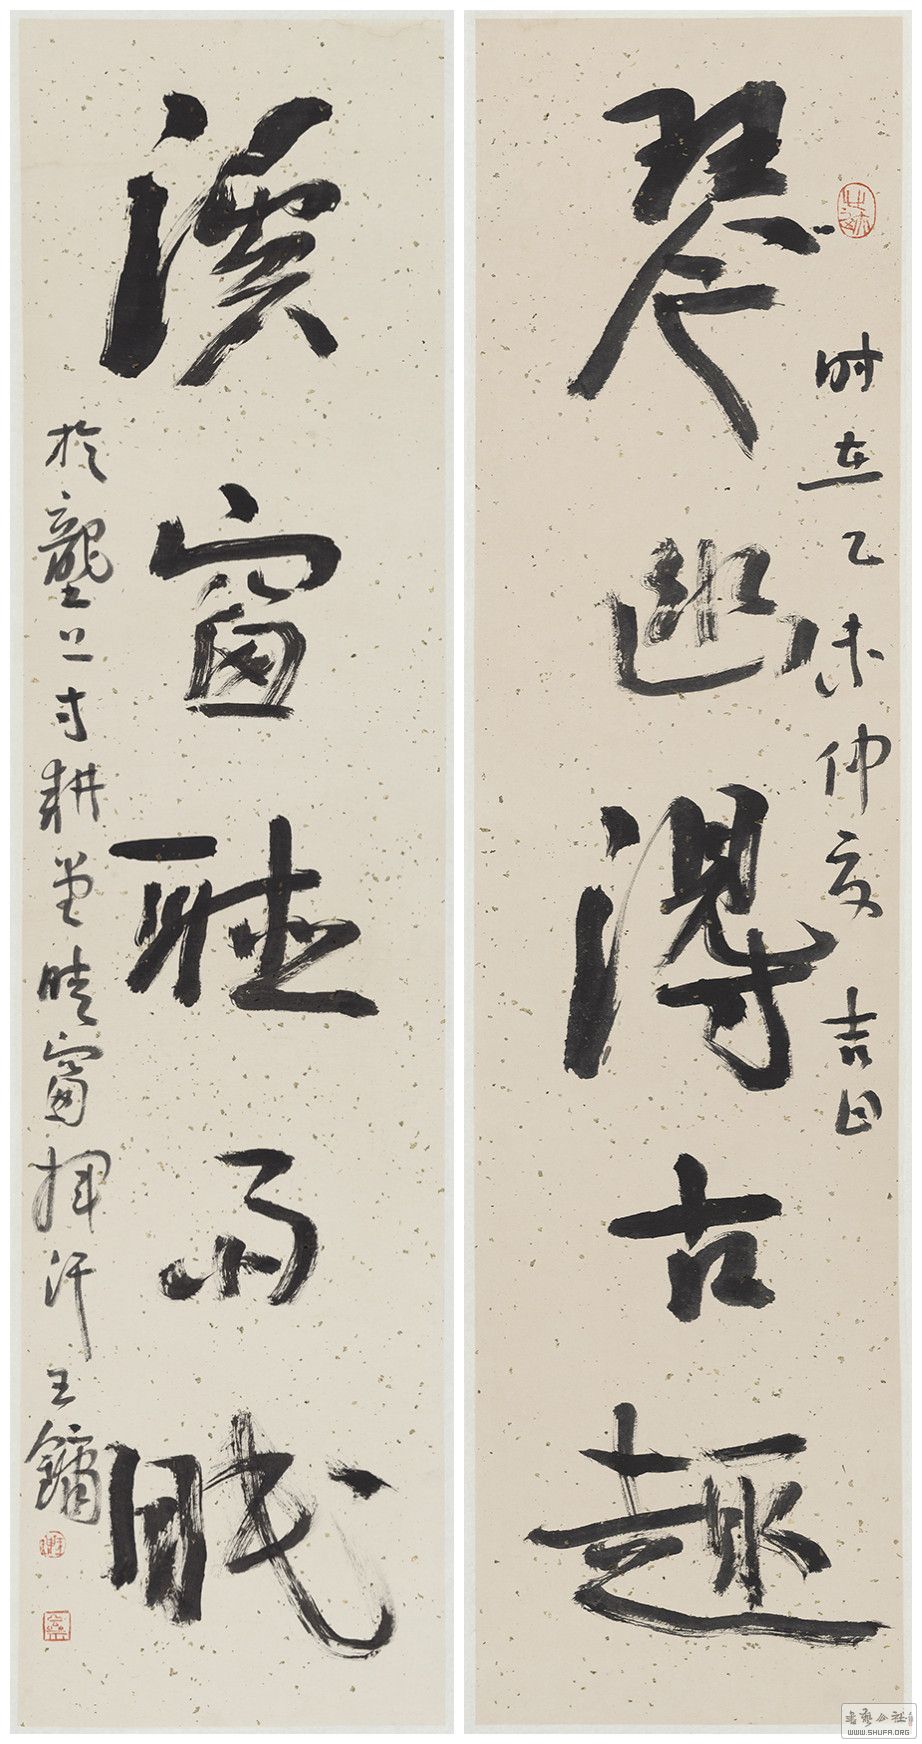 琴幽得古趣
时在乙未仲夏吉日
溪窗聽雨眠
於壟上寸耕堂晴窗揮汗王鏞
书艺公社
WWW.SHUFA.ORG